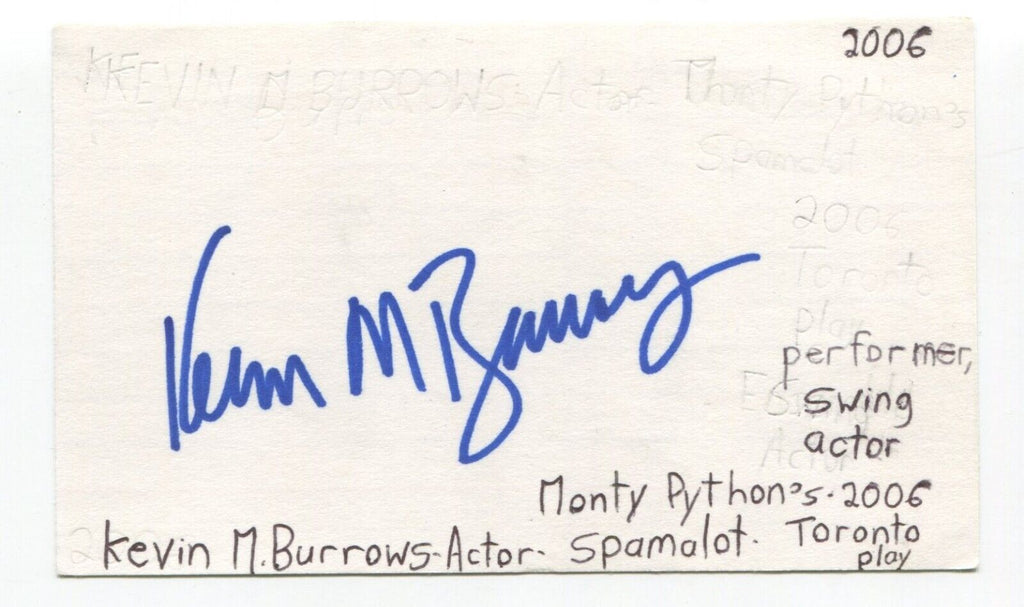 2006
KEVIN M BURROWS-Actor- Monty Python's
Spamalot
2006
Toronto
play
Kevin M Burrows
performer,
swing
actor
Actor
Monty Python's-2006
Kevin M. Burrows-Actor- Spamalot- Toronto
play